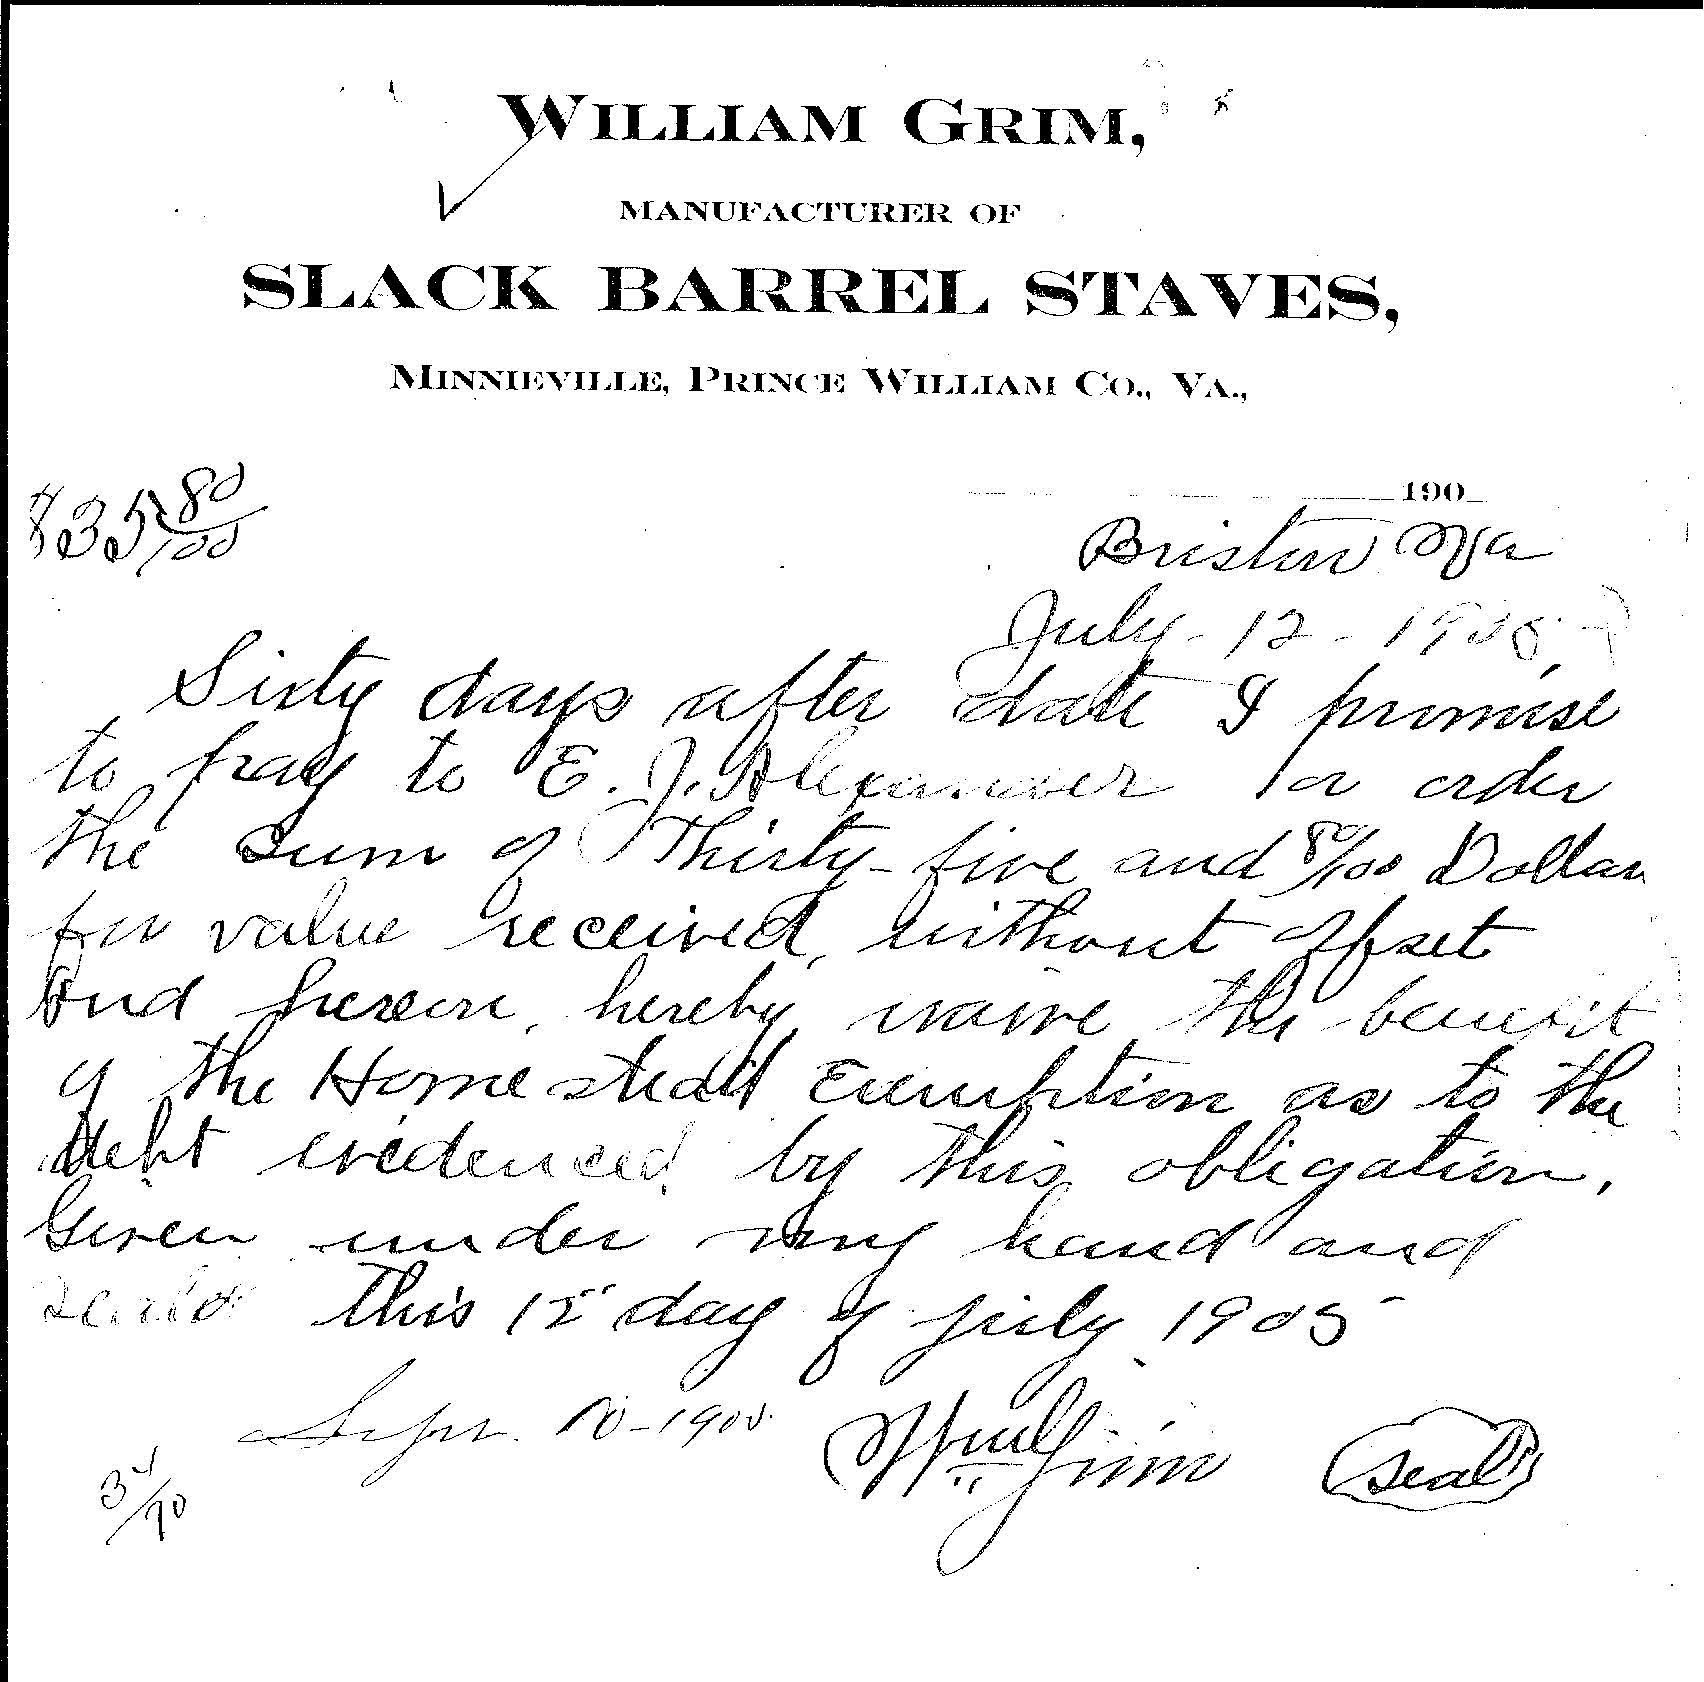 WILLIAM GRIM,
MANUFACTURER OF
SLACK BARREL STAVES,
MINNIEVILLE, PRINCE WILLIAM CO., VA.,
190
$35 80/100
Bristow Va
July - 12 - 1905
Sixty days after date I promise
to pay to E. J. Alexander or order
the sum of Thirty-five and 80/100 Dollars
for value received, without offset
and herein, hereby waive the benefit
of the Homestead Exemption as to the
debt evidenced by this obligation,
Given under my hand and
seal this 12" day of July 1905
Sept. 10-1905
Wm Grim
Seal